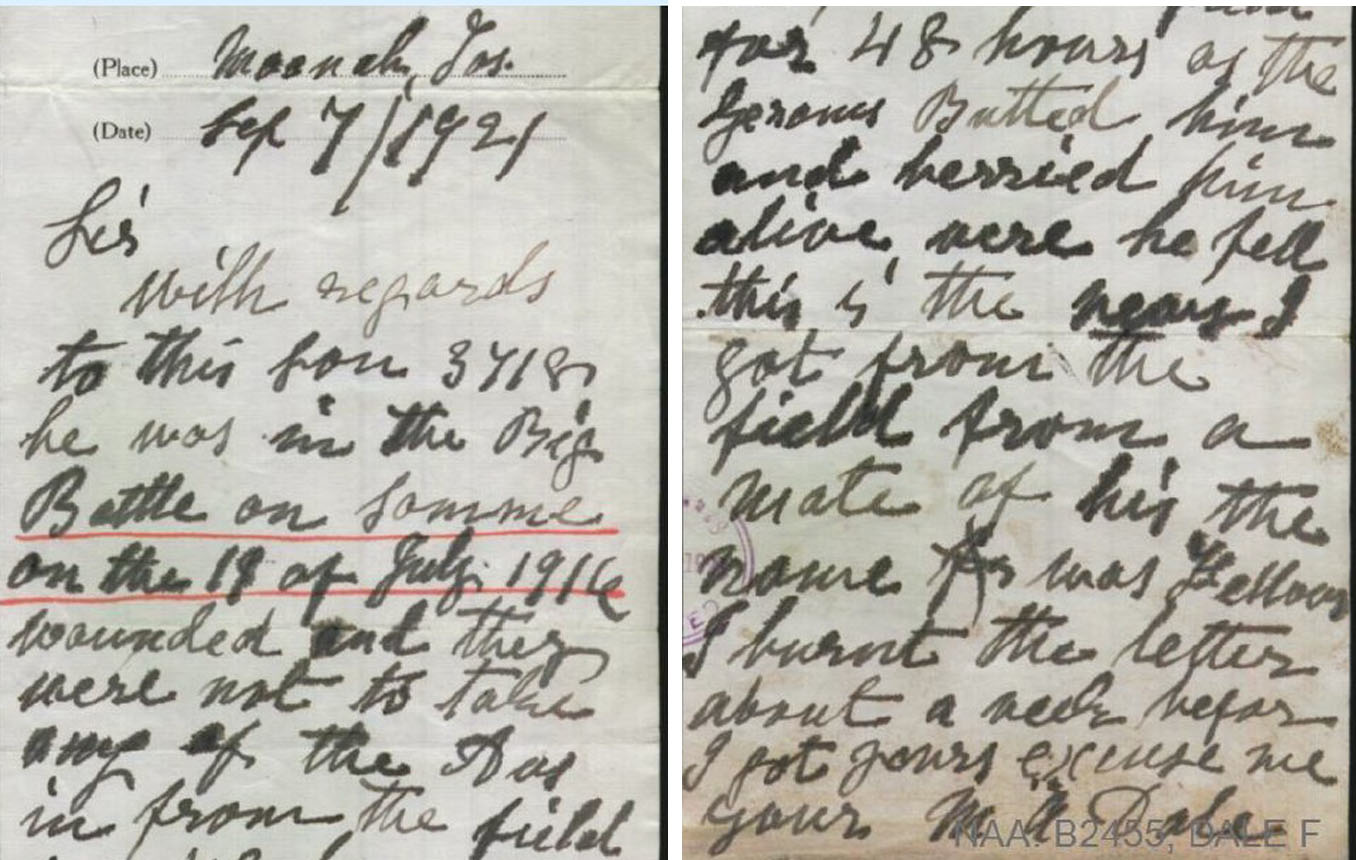 (Place) Moonah, Tas.
(Date) Sep 7/1921
Sir
with regards
to this son 3718
he was in the Big
Battle on somme
on the 19 of July 1916
wounded and they
were not to take
any of the Aus
in from the field
for 48 hours as the
Gerams Butted him
and berried him
alive were he fell
this is the news I
got from the
field from a
mate of his the
name was
I burnt the letter
about a week befor
I got yours excuse me
your M A Dale
NAA: B2455, DALE F